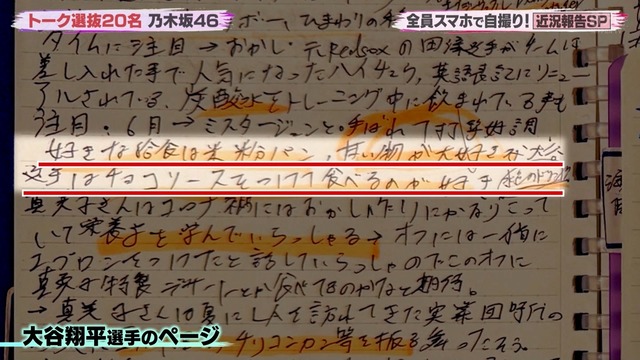 トーク選抜20名 乃木坂46
全員スマホで自撮り！近況報告SP
タイムに注目→おかし・元Redsoxの田澤選手がチームに
差し入れた事で人気になったハイチュウ、英語表記にリニュー
アルされている、炭酸水をトレーニング中に飲まれている事も
注目。6月→ミスタージューンと呼ばれて打撃好調
好きな給食は米粉パン、甘い物が大好きな大谷
選手はチョコソースをつけて食べるのが好き
真美子さんはコロナ禍にはおかし作りにかなりこって
いて栄養学を学んでいらっしゃる→オフには一緒に
エプロンをつけたと話していらっしゃるのでこのオフに
真美子特製デザートとか食べてるのかなと期待。
→真美子さんは急にLAを訪れてきた実業団時代の
チリコンカン等を振る舞ったそう。
大谷翔平選手のページ